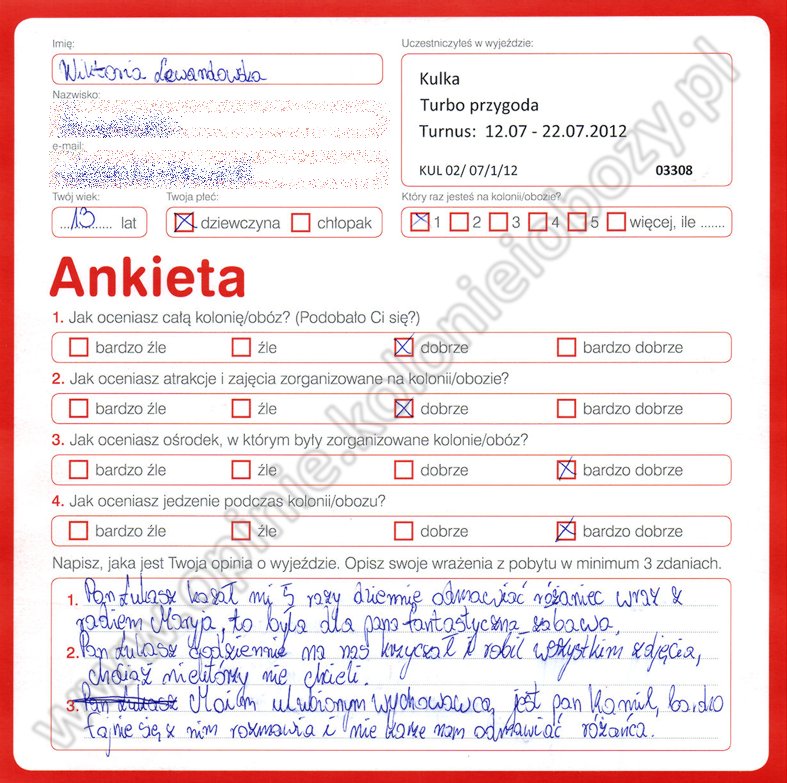 Imię:
Uczestniczyłeś w wyjeździe:
Wiktoria Lewandowska
Kulka
Nazwisko:
Turbo przygoda
Turnus: 12.07 - 22.07.2012
e-mail:
KUL 02/ 07/1/12 03308
Twój wiek: Twoja płeć: Który raz jesteś na kolonii/obozie?
...13...... lat dziewczyna chłopak 1 2 3 4 5 więcej, ile .......
Ankieta
1. Jak oceniasz całą kolonię/obóz? (Podobało Ci się?)
bardzo źle źle dobrze bardzo dobrze
2. Jak oceniasz atrakcje i zajęcia zorganizowane na kolonii/obozie?
bardzo źle źle dobrze bardzo dobrze
3. Jak oceniasz ośrodek, w którym były zorganizowane kolonie/obóz?
bardzo źle źle dobrze bardzo dobrze
4. Jak oceniasz jedzenie podczas kolonii/obozu?
bardzo źle źle dobrze bardzo dobrze
Napisz, jaka jest Twoja opinia o wyjeździe. Opisz swoje wrażenia z pobytu w minimum 3 zdaniach.
1. Pan Łukasz kazał mi 5 razy dziennie odmawiać różaniec wraz z
radiem Maryja, to była dla pana fantastyczna zabawa.
2. Pan Łukasz codziennie na nas krzyczał i robił wszystkim zdjęcia,
chociaż niektórzy nie chcieli.
3. Pan Łukasz Moim ulubionym wychowawcą jest pan Kamil, bardzo
fajnie się z nim rozmawia i nie każe nam odmawiać różańca.
www.opinie.kolonieiobozy.pl